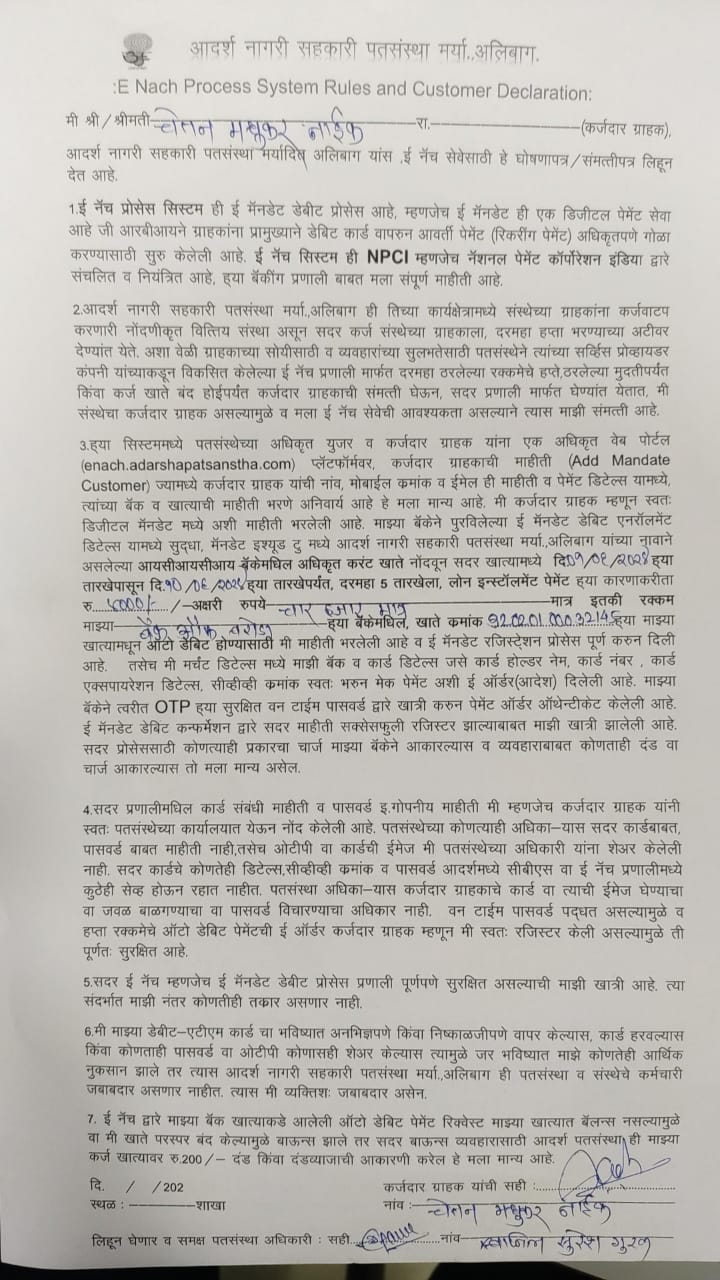 आदर्श नागरी सहकारी पतसंस्था मर्या.,अलिबाग.
:E Nach Process System Rules and Customer Declaration:
मी श्री/श्रीमती चेतन मधुकर नाईक रा. (कर्जदार ग्राहक),
आदर्श नागरी सहकारी पतसंस्था मर्यादित अलिबाग यांस ,ई नॅच सेवेसाठी हे घोषणापत्र/संमत्तीपत्र लिहून
देत आहे.
1.ई नॅच प्रोसेस सिस्टिम ही ई मॅनडेट डेबीट प्रोसेस आहे, म्हणजेच ई मॅनडेट ही एक डिजीटल पेमेंट सेवा
आहे जी आरबीआयने ग्राहकांना प्रामुख्याने डेबिट कार्ड वापरुन आवर्ती पेमेंट (रिकरींग पेमेंट) अधिकृतपणे गोळा
करण्यासाठी सुरु केलेली आहे. ई नॅच सिस्टिम ही NPCI म्हणजेच नॅशनल पेमेंट कॉर्पोरेशन इंडिया द्वारे
संचलित व नियंत्रित आहे, ह्या बॅकींग प्रणाली बाबत मला संपूर्ण माहीती आहे.
2.आदर्श नागरी सहकारी पतसंस्था मर्या.,अलिबाग ही तिच्या कार्यक्षेत्रामध्ये संस्थेच्या ग्राहकांना कर्जवाटप
करणारी नोंदणीकृत वित्तिय संस्था असून सदर कर्ज संस्थेच्या ग्राहकाला, दरमहा हप्ता भरण्याच्या अटीवर
देण्यांत येते. अशा वेळी ग्राहकाच्या सोयीसाठी व व्यवहारांच्या सुलभतेसाठी पतसंस्थेने त्यांच्या सर्व्हिस प्रोव्हायडर
कंपनी यांच्याकडून विकसित केलेल्या ई नॅच प्रणाली मार्फत दरमहा ठरलेल्या रक्कमेचे हप्ते,ठरलेल्या मुदतीपर्यत
किंवा कर्ज खाते बंद होईपर्यंत कर्जदार ग्राहकाची संमत्ती घेऊन, सदर प्रणाली मार्फत घेण्यांत येतात, मी
संस्थेचा कर्जदार ग्राहक असल्यामुळे व मला ई नॅच सेवेची आवश्यकता असल्याने त्यास माझी संमत्ती आहे.
3.ह्या सिस्टिममध्ये पतसंस्थेच्या अधिकृत युजर व कर्जदार ग्राहक यांना एक अधिकृत वेब पोर्टल
(enach.adarshapatsanstha.com) प्लॅटफॉर्मवर, कर्जदार ग्राहकाची माहीती (Add Mandate
Customer) ज्यामध्ये कर्जदार ग्राहक यांची नांव, मोबाईल क्रमांक व ईमेल ही माहीती व पेमेंट डिटेल्स यामध्ये,
त्यांच्या बॅंक व खात्याची माहीती भरणे अनिवार्य आहे हे मला मान्य आहे. मी कर्जदार ग्राहक म्हणून स्वतः
डिजीटल मॅनडेट मध्ये अशी माहीती भरलेली आहे. माझ्या बॅकेने पुरविलेल्या ई मॅनडेट डेबिट एनरॉलमेंट
डिटेल्स यामध्ये सुद्धा, मॅनडेट इश्यूड टु मध्ये आदर्श नागरी सहकारी पतसंस्था मर्या.,अलिबाग यांच्या नावाने
असलेल्या आयसीआयसीआय बॅंकेमधिल अधिकृत करंट खाते नोंदवून सदर खात्यामध्ये दि ह्या
तारखेपासून दि. ह्या तारखेपर्यंत, दरमहा 5 तारखेला, लोन इन्स्टॉलमेंट पेमेंट ह्या कारणाकरीता
रु. 4000/- /-अक्षरी रुपये चार हजार मात्र मात्र इतकी रक्कम
माझ्या बँक ऑफ बरोडा ह्या बॅंकेमधिल, खाते क्रमांक ह्या माझ्या
खात्यामधून ऑटो डेबिट होण्यासाठी मी माहीती भरलेली आहे व ई मॅनडेट रजिस्ट्रेशन प्रोसेस पूर्ण करुन दिली
आहे. तसेच मी मर्चंट डिटेल्स मध्ये माझी बॅंक व कार्ड डिटेल्स जसे कार्ड होल्डर नेम, कार्ड नंबर , कार्ड
एक्सपायरेशन डिटेल्स, सीव्हीव्ही क्रमांक स्वतः भरुन मेक पेमेंट अशी ई ऑर्डर(आदेश) दिलेली आहे. माझ्या
बॅकेने त्वरीत OTP ह्या सुरक्षित वन टाईम पासवर्ड द्वारे खात्री करुन पेमेंट ऑर्डर ऑथेन्टीकेट केलेली आहे.
ई मॅनडेट डेबिट कन्फर्मेशन द्वारे सदर माहीती सक्सेसफुली रजिस्टर झाल्याबाबत माझी खात्री झालेली आहे.
सदर प्रोसेससाठी कोणत्याही प्रकारचा चार्ज माझ्या बॅकेने आकारल्यास व व्यवहाराबाबत कोणताही दंड वा
चार्ज आकारल्यास तो मला मान्य असेल.
4.सदर प्रणालीमधिल कार्ड संबंधी माहीती व पासवर्ड इ.गोपनीय माहीती मी म्हणजेच कर्जदार ग्राहक यांनी
स्वतः पतसंस्थेच्या कार्यालयात येऊन नोंद केलेली आहे. पतसंस्थेच्या कोणत्याही अधिका–यास सदर कार्डबाबत,
पासवर्ड बाबत माहीती नाही,तसेच ओटीपी वा कार्डची ईमेज मी पतसंस्थेच्या अधिकारी यांना शेअर केलेली
नाही. सदर कार्डचे कोणतेही डिटेल्स,सीव्हीव्ही क्रमांक व पासवर्ड आदर्शमध्ये सीबीएस वा ई नॅच प्रणालीमध्ये
कुठेही सेव्ह होऊन रहात नाहीत. पतसंस्था अधिका–यास कर्जदार ग्राहकाचे कार्ड वा त्याची ईमेज घेण्याचा
वा जवळ बाळगण्याचा वा पासवर्ड विचारण्याचा अधिकार नाही. वन टाईम पासवर्ड पद्धत असल्यामुळे व
हप्ता रक्कमेचे ऑटो डेबिट पेमेंटची ई ऑर्डर कर्जदार ग्राहक म्हणून मी स्वतः रजिस्टर केली असल्यामुळे ती
पूर्णतः सुरक्षित आहे.
5.सदर ई नॅच म्हणजेच ई मॅनडेट डेबीट प्रोसेस प्रणाली पूर्णपणे सुरक्षित असल्याची माझी खात्री आहे. त्या
संदर्भात माझी नंतर कोणतीही तकार असणार नाही.
6.मी माझ्या डेबीट–एटीएम कार्ड चा भविष्यात अनभिज्ञपणे किंवा निष्काळजीपणे वापर केल्यास, कार्ड हरवल्यास
किंवा कोणताही पासवर्ड वा ओटीपी कोणासही शेअर केल्यास त्यामुळे जर भविष्यात माझे कोणतेही आर्थिक
नुकसान झाले तर त्यास आदर्श नागरी सहकारी पतसंस्था मर्या.,अलिबाग ही पतसंस्था व संस्थेचे कर्मचारी
जबाबदार असणार नाहीत. त्यास मी व्यक्तिशः जबाबदार असेन.
7. ई नॅच द्वारे माझ्या बॅंक खात्याकडे आलेली ऑटो डेबिट पेमेंट रिक्वेस्ट माझ्या खात्यात बॅलन्स नसल्यामुळे
वा मी खाते परस्पर बंद केल्यामुळे बाऊन्स झाले तर सदर बाऊन्स व्यवहारासाठी आदर्श पतसंस्था ही माझ्या
कर्ज खात्यावर रु.200/– दंड किंवा दंडव्याजाची आकारणी करेल हे मला मान्य आहे.
दि. / /202 कर्जदार ग्राहक यांची सही :
स्थळ : शाखा नांव : चेतन मधुकर नाईक
लिहून घेणार व समक्ष पतसंस्था अधिकारी : सही नांव स्वप्निल सुरेश गुरव